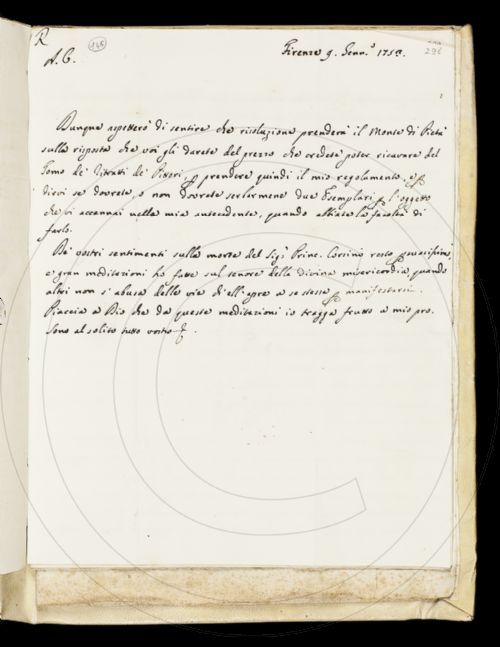 R
A. C.
146
Firenze 9. Genn.o 1753.
296
Dunque aspetterò di sentire che risoluzione prenderà il Monte di Pietà
sulla risposta che voi gli darete del prezzo che credete poter ricavare del
Tomo de' Ritratti de' Pittori p prendere quindi il mio regolamento, e p
dirvi se dovrete, o non dovrete serbarmene due Esemplari p l'oggetto
che vi accennai nella mia antecedente, quando abbiate la facoltà di
farlo.
De' vostri sentimenti sulla morte del Sig.r Princ. Corsini resto
e gran meditazioni ho fatte sul tenore della divina misericordia quando
altri non s' abusa delle vie di'ell' apre a se stessa p manifestarsi.
Piaccia a Dio che da queste meditazioni io tragga frutto a mio pro.
Sono al solito tutto vostro